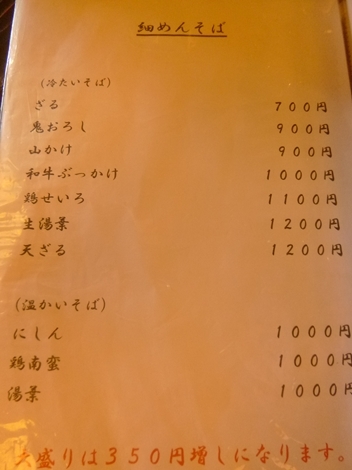 細めんそば
(冷たいそば)
ざる 700円
鬼おろし 900円
山かけ 900円
和牛ぶっかけ 1000円
鶏せいろ 1100円
生湯葉 1200円
天ざる 1200円
(温かいそば)
にしん 1000円
鶏南蛮 1000円
湯葉 1000円
大盛りは350円増しになります。